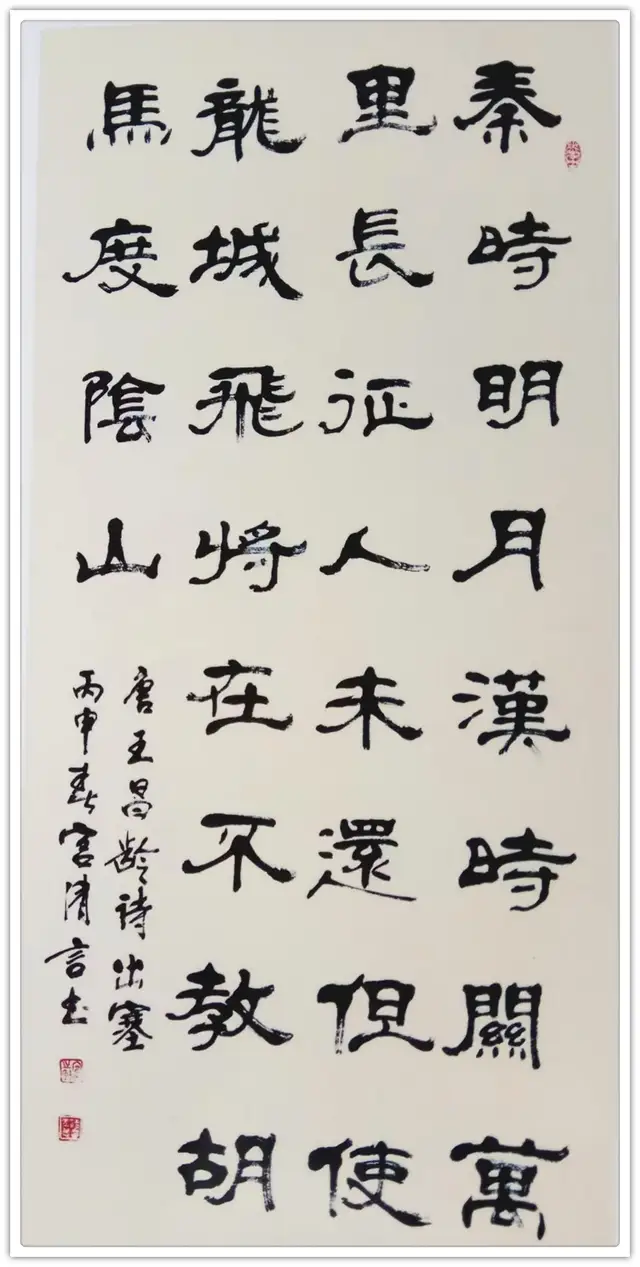 秦時明月漢時關萬
里長征人未還但使
龍城飛將在不教胡
馬度陰山
唐王昌齡詩出塞
丙申春宫清言书